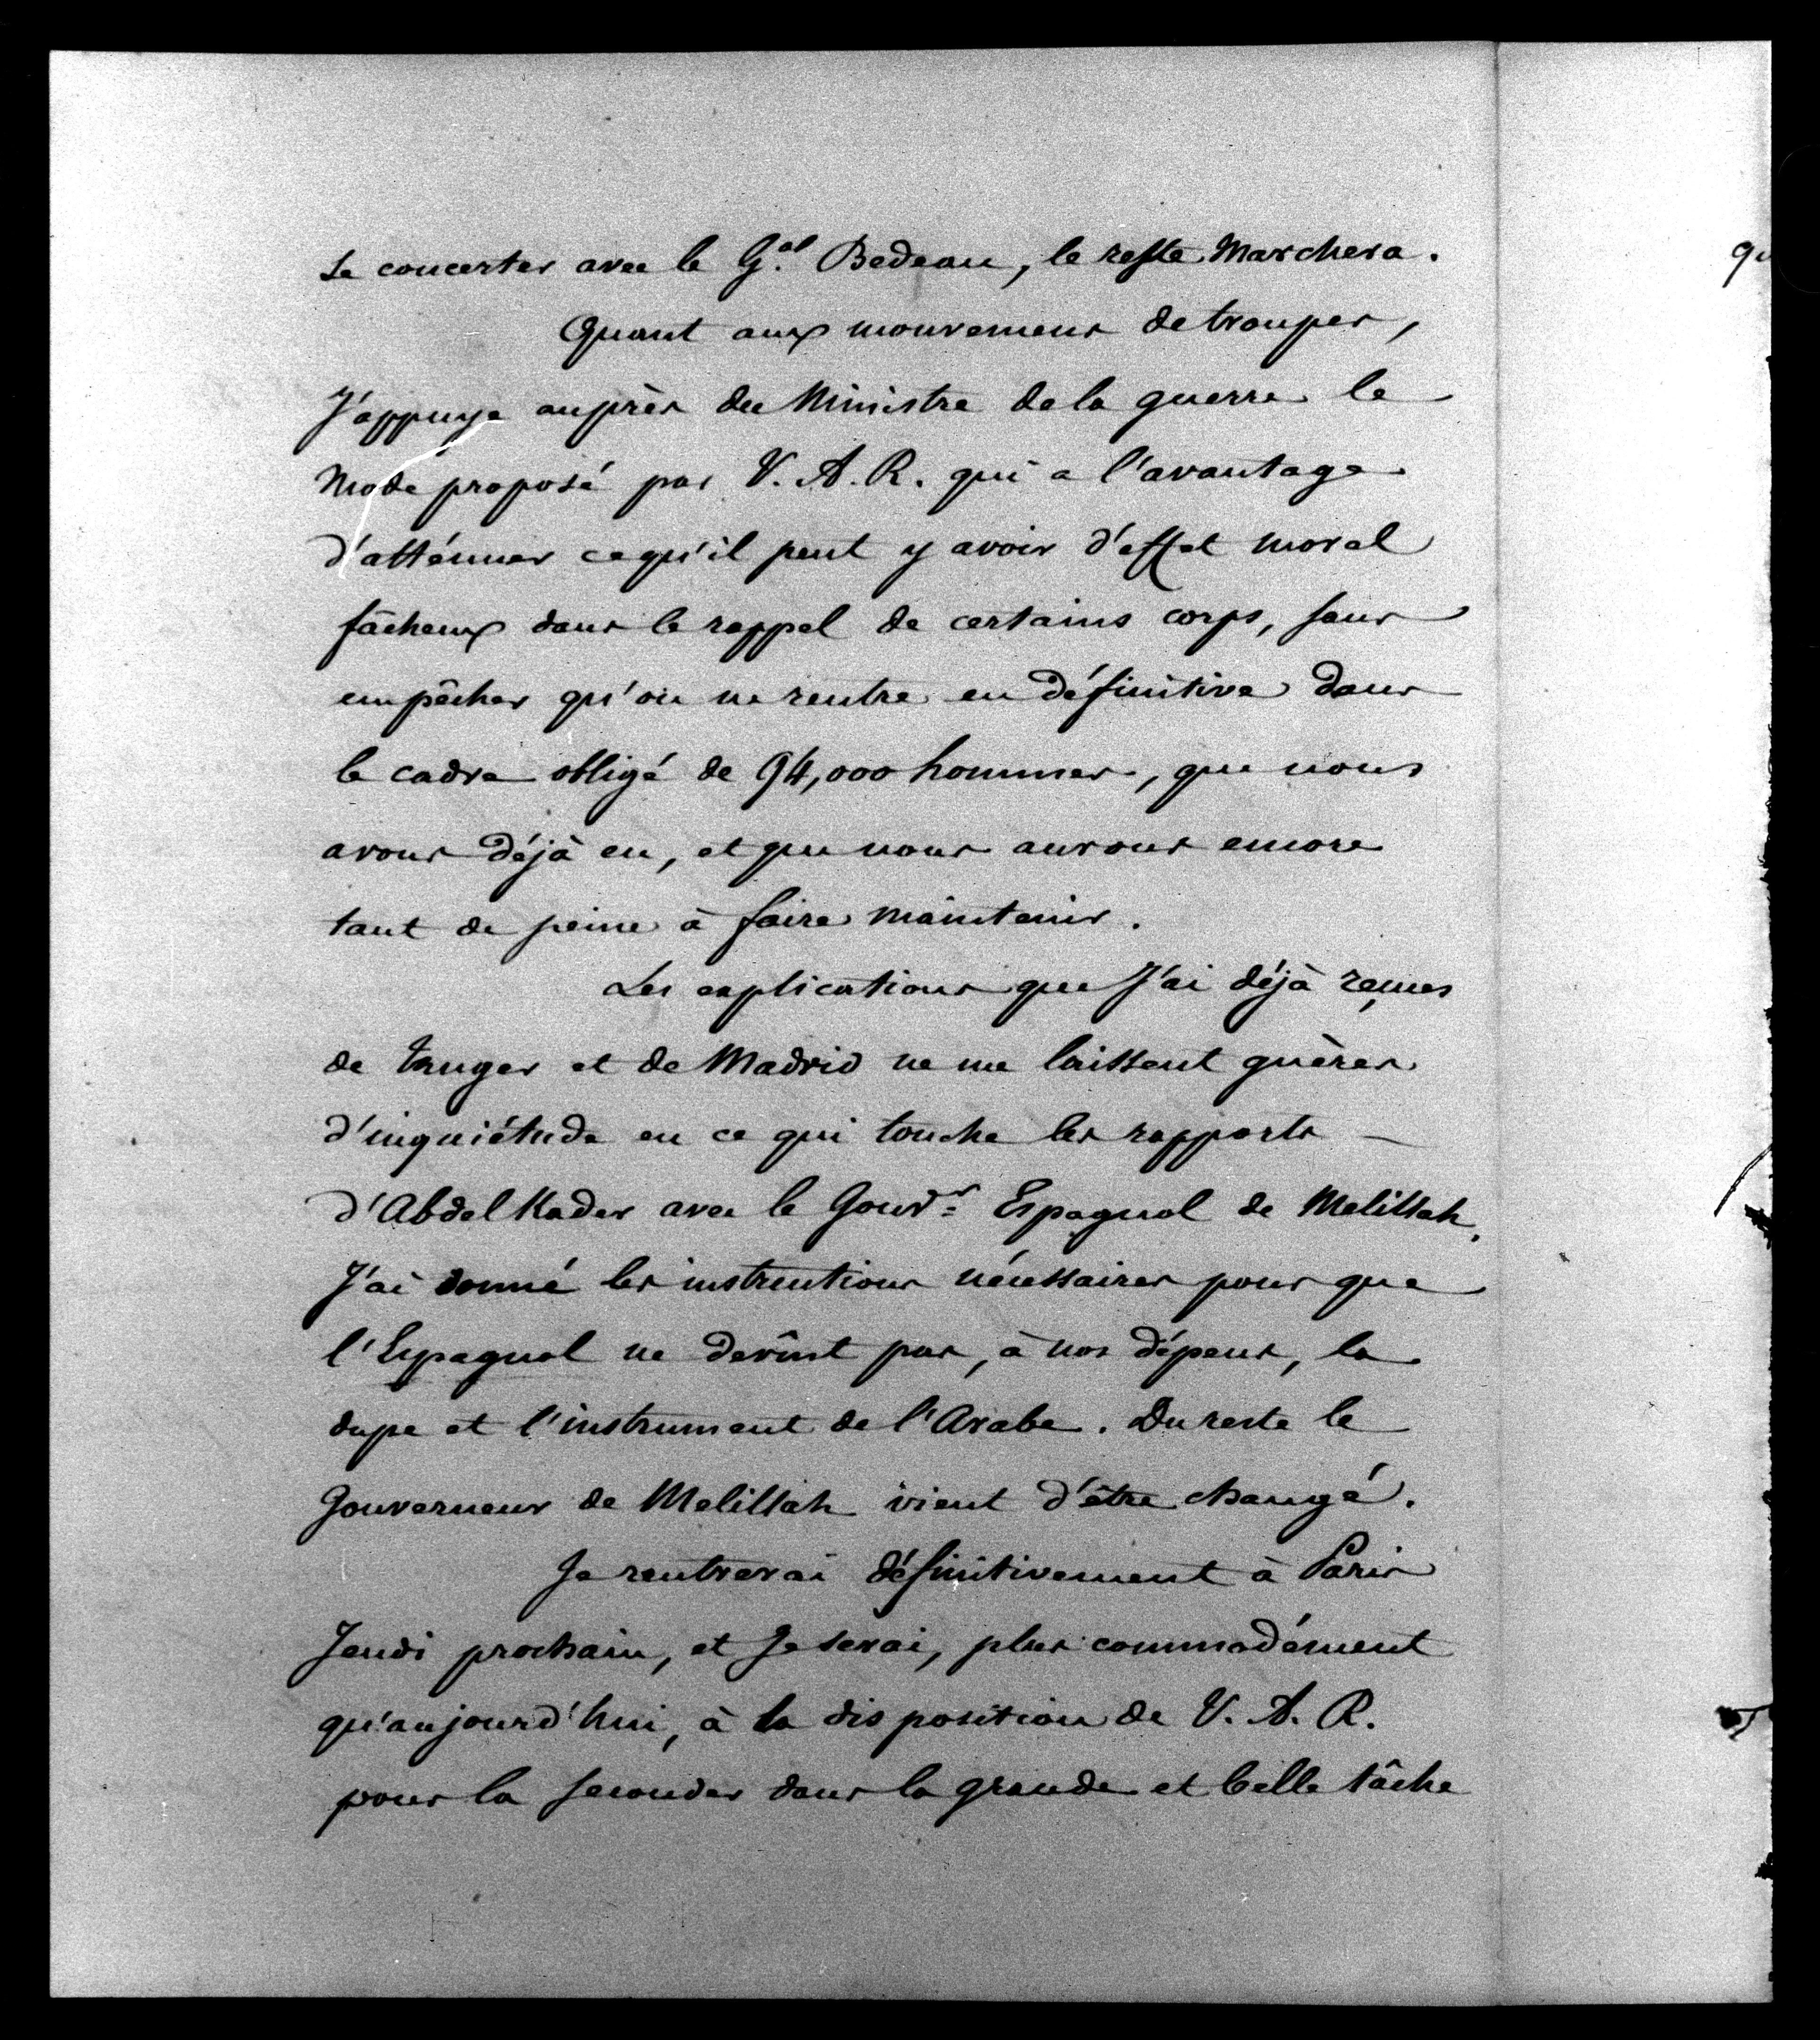 se concerter avec le G.al Bedeau, le reste Marchera.
Quant aux mouvemens de troupes,
J'appuye auprès du Ministre de la guerre le
Mode proposé par V. A. R. qui a l'avantage
d'atténuer ce qu'il peut y avoir d'effet moral
fâcheux dans le rappel de certains corps, sans
empêcher qu'on ne rentre en définitive dans
le cadre obligé de 94,000 hommes, que nous
avons déjà eu, et que nous aurons encore
tant de peine à faire Maintenir.
Les explications que J'ai déjà reçues
de tanger et de Madrid ne me laissent guères
d'inquiétude en ce qui touche les rapports
d'Abdel Kader avec le Gouvr Espagnol de Melillah.
J'ai donné les instructions nécessaires pour que
l'Espagnol ne devînt pas, à nos dépens, la
dupe et l'instrument de l'Arabe. Du reste le
Gouverneur de Melillah vient d'être changé.
Je rentrerai définitivement à Paris
Jeudi prochain, et Je serai, plus commodément
qu'aujourd'hui, à la disposition de V. A. R.
pour la seconder dans la grande et belle tâche